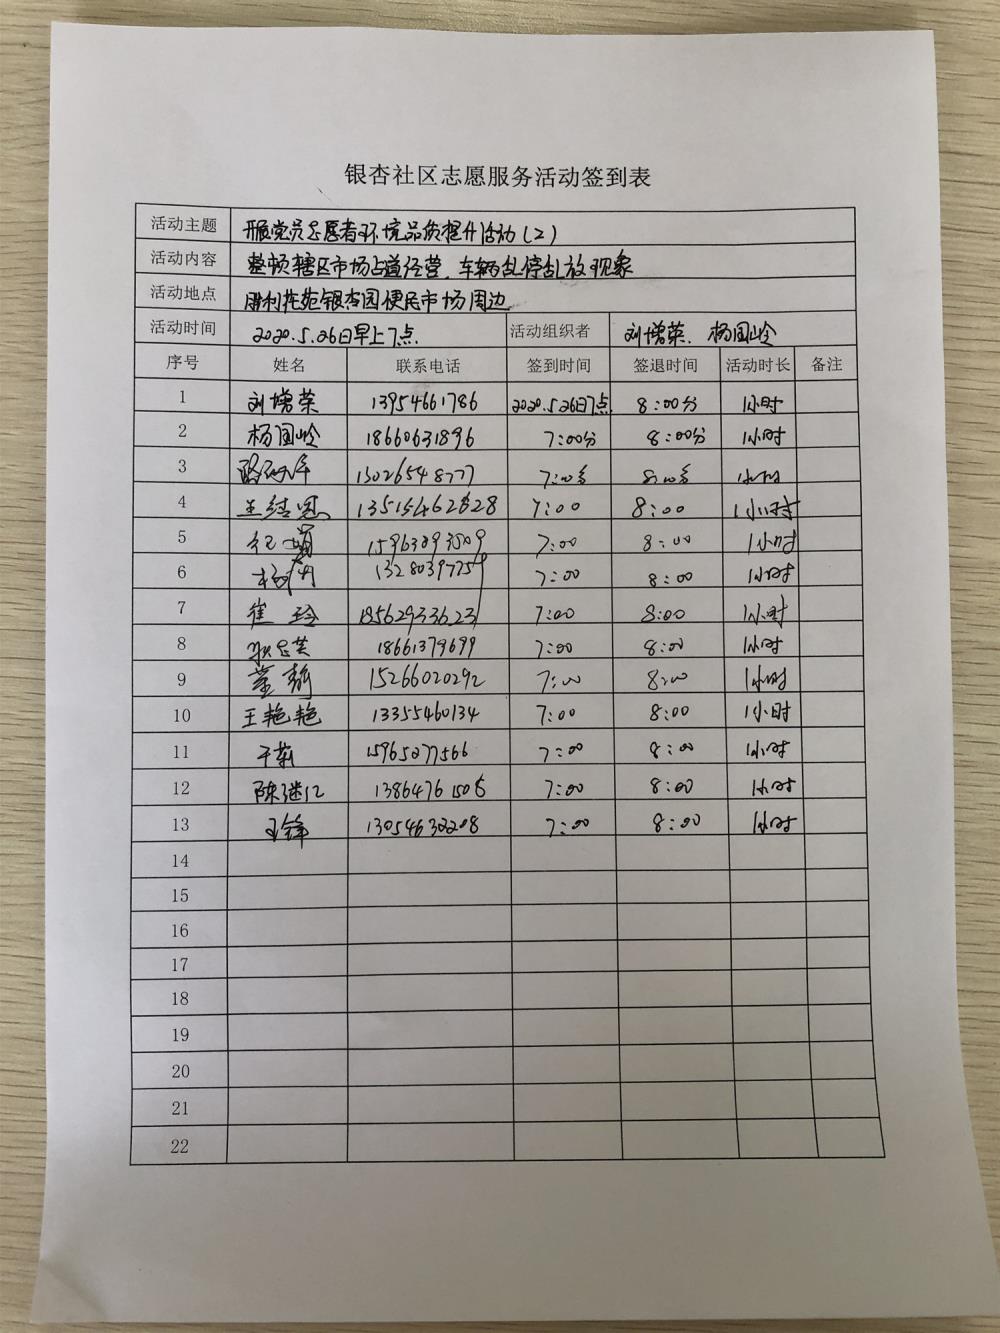 银杏社区志愿服务活动签到表
活动主题 开展党员志愿者环境品质提升活动(2)
活动内容 整顿辖区市场占道经营、车辆乱停乱放现象
活动地点 胜利花苑银杏园便民市场周边
活动时间 2020.5.26日早上7点 活动组织者 刘增荣、杨国岭
序号 姓名 联系电话 签到时间 签退时间 活动时长 备注
1 刘增荣 13954661786 2020.5.26日7点 8:00分 1小时
2 杨国岭 18660631896 7:00分 8:00分 1小时
3 13026548777 7:00分 8:00分 1小时
4 7:00 8:00 1小时
5 15963093509 7:00 8:00 1小时
6 13280397759 7:00 8:00 1小时
7 崔玲 18562933623 7:00 8:00 1小时
8 18661379699 7:00 8:00 1小时
9 董静 15266020292 7:00 8:00 1小时
10 王艳艳 13355460134 7:00 8:00 1小时
11 于莉 15965277566 7:00 8:00 1小时
12 陈继仁 13864761505 7:00 8:00 1小时
13 王锋 13054632208 7:00 8:00 1小时
14
15
16
17
18
19
20
21
22